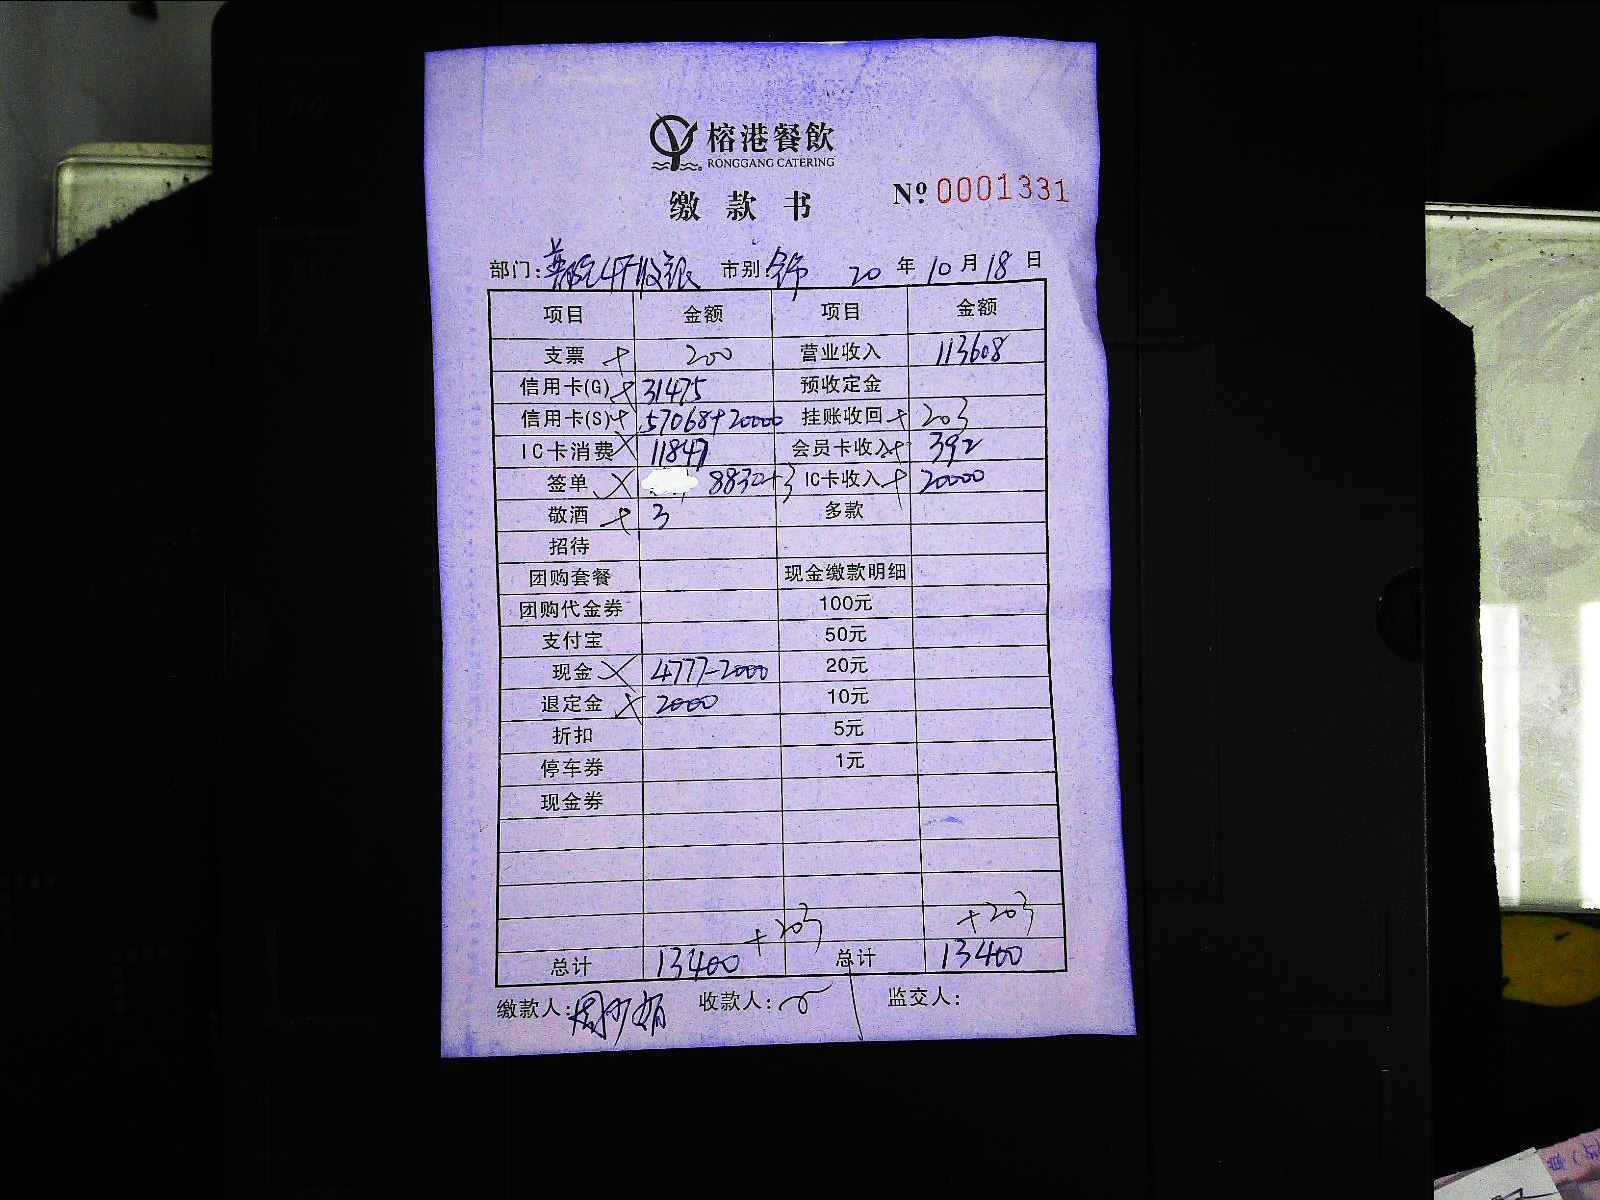 榕港餐飲
RONGGANG CATERING
缴款书 Nº 0001331
部门: 4F收银 市别: 20 年 10 月 18 日
项目 金额 项目 金额
支票 200 营业收入 113608
信用卡(G) 31475 预收定金
信用卡(S) 57068+20000 挂账收回 203
IC卡消费 11847 会员卡收入 392
签单 8830+3 IC卡收入 20000
敬酒 3 多款
招待
团购套餐 现金缴款明细
团购代金券 100元
支付宝 50元
现金 4777-2000 20元
退定金 2000 10元
折扣 5元
停车券 1元
现金券
+203 +203
总计 13400 总计 13400
缴款人: 收款人: 监交人: